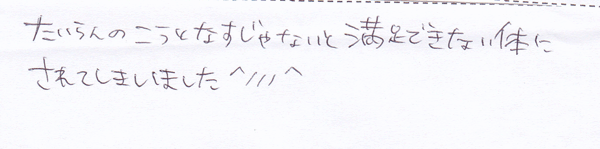 たいらんのこうとなすじゃないと満足できない体に
されてしまいました^///^